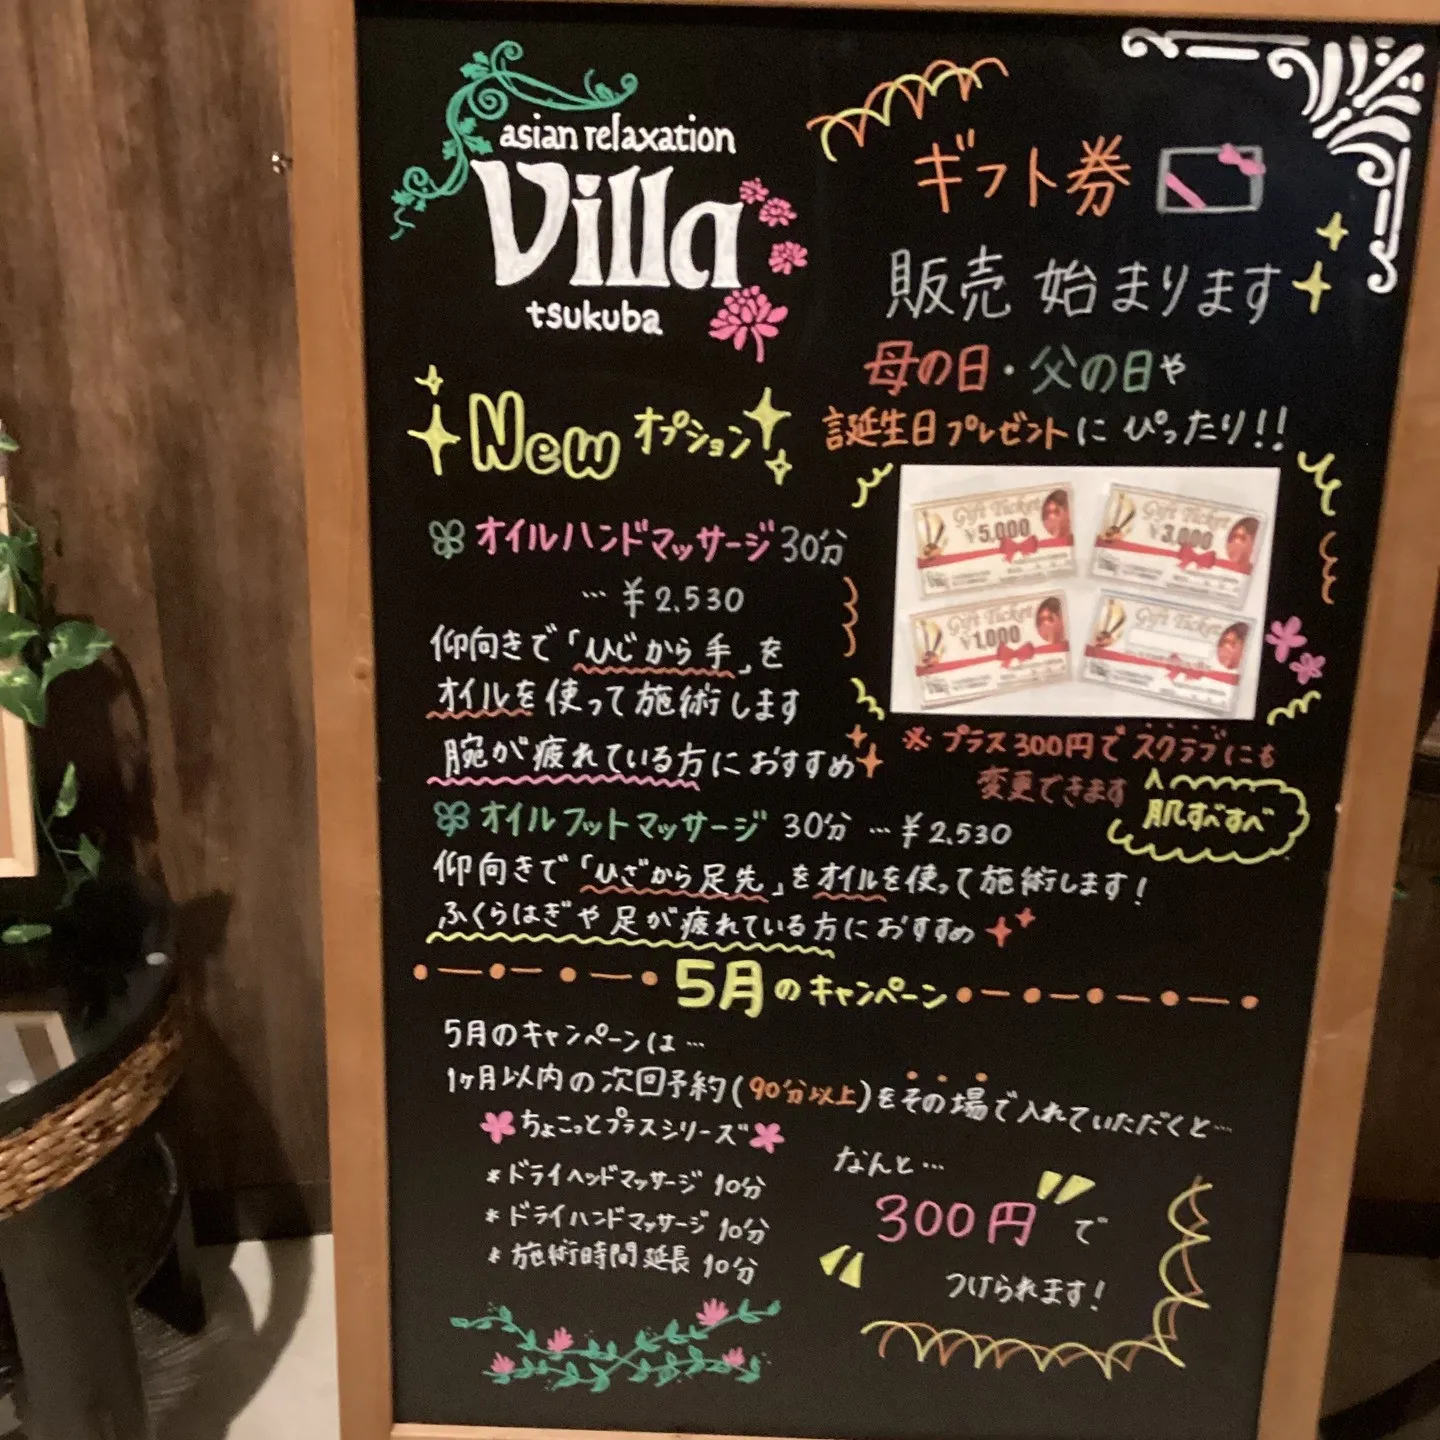 asian relaxation
Villa
tsukuba
ギフト券
販売 始まります
母の日・父の日や
誕生日プレゼントにぴったり!!
Gift Ticket
¥5,000
Gift Ticket
¥3,000
Gift Ticket
¥1,000
Gift Ticket
※プラス300円でスクラブにも
変更できます
肌すべすべ
New オプション
オイルハンドマッサージ 30分
…¥2,530
仰向きで「ひじから手」を
オイルを使って施術します
腕が疲れている方におすすめ
オイルフットマッサージ 30分 …¥2,530
仰向きで「ひざから足先」をオイルを使って施術します!
ふくらはぎや足が疲れている方におすすめ
5月のキャンペーン
5月のキャンペーンは…
1ヶ月以内の次回予約(90分以上)をその場で入れていただくと…
ちょこっとプラスシリーズ
*ドライヘッドマッサージ 10分
*ドライハンドマッサージ 10分
*施術時間延長 10分
なんと…
300円で
つけられます!